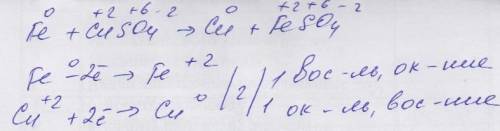 Fe⁰ + Cu⁺²S⁺⁶O₄⁻² → Cu⁰ + Fe⁺²S⁺⁶O₄⁻²
Fe⁰ - 2ē → Fe⁺² | 2 | 1 вос-ль, ок-ние
Cu⁺² + 2ē → Cu⁰ | 1 ок-ль, вос-ние